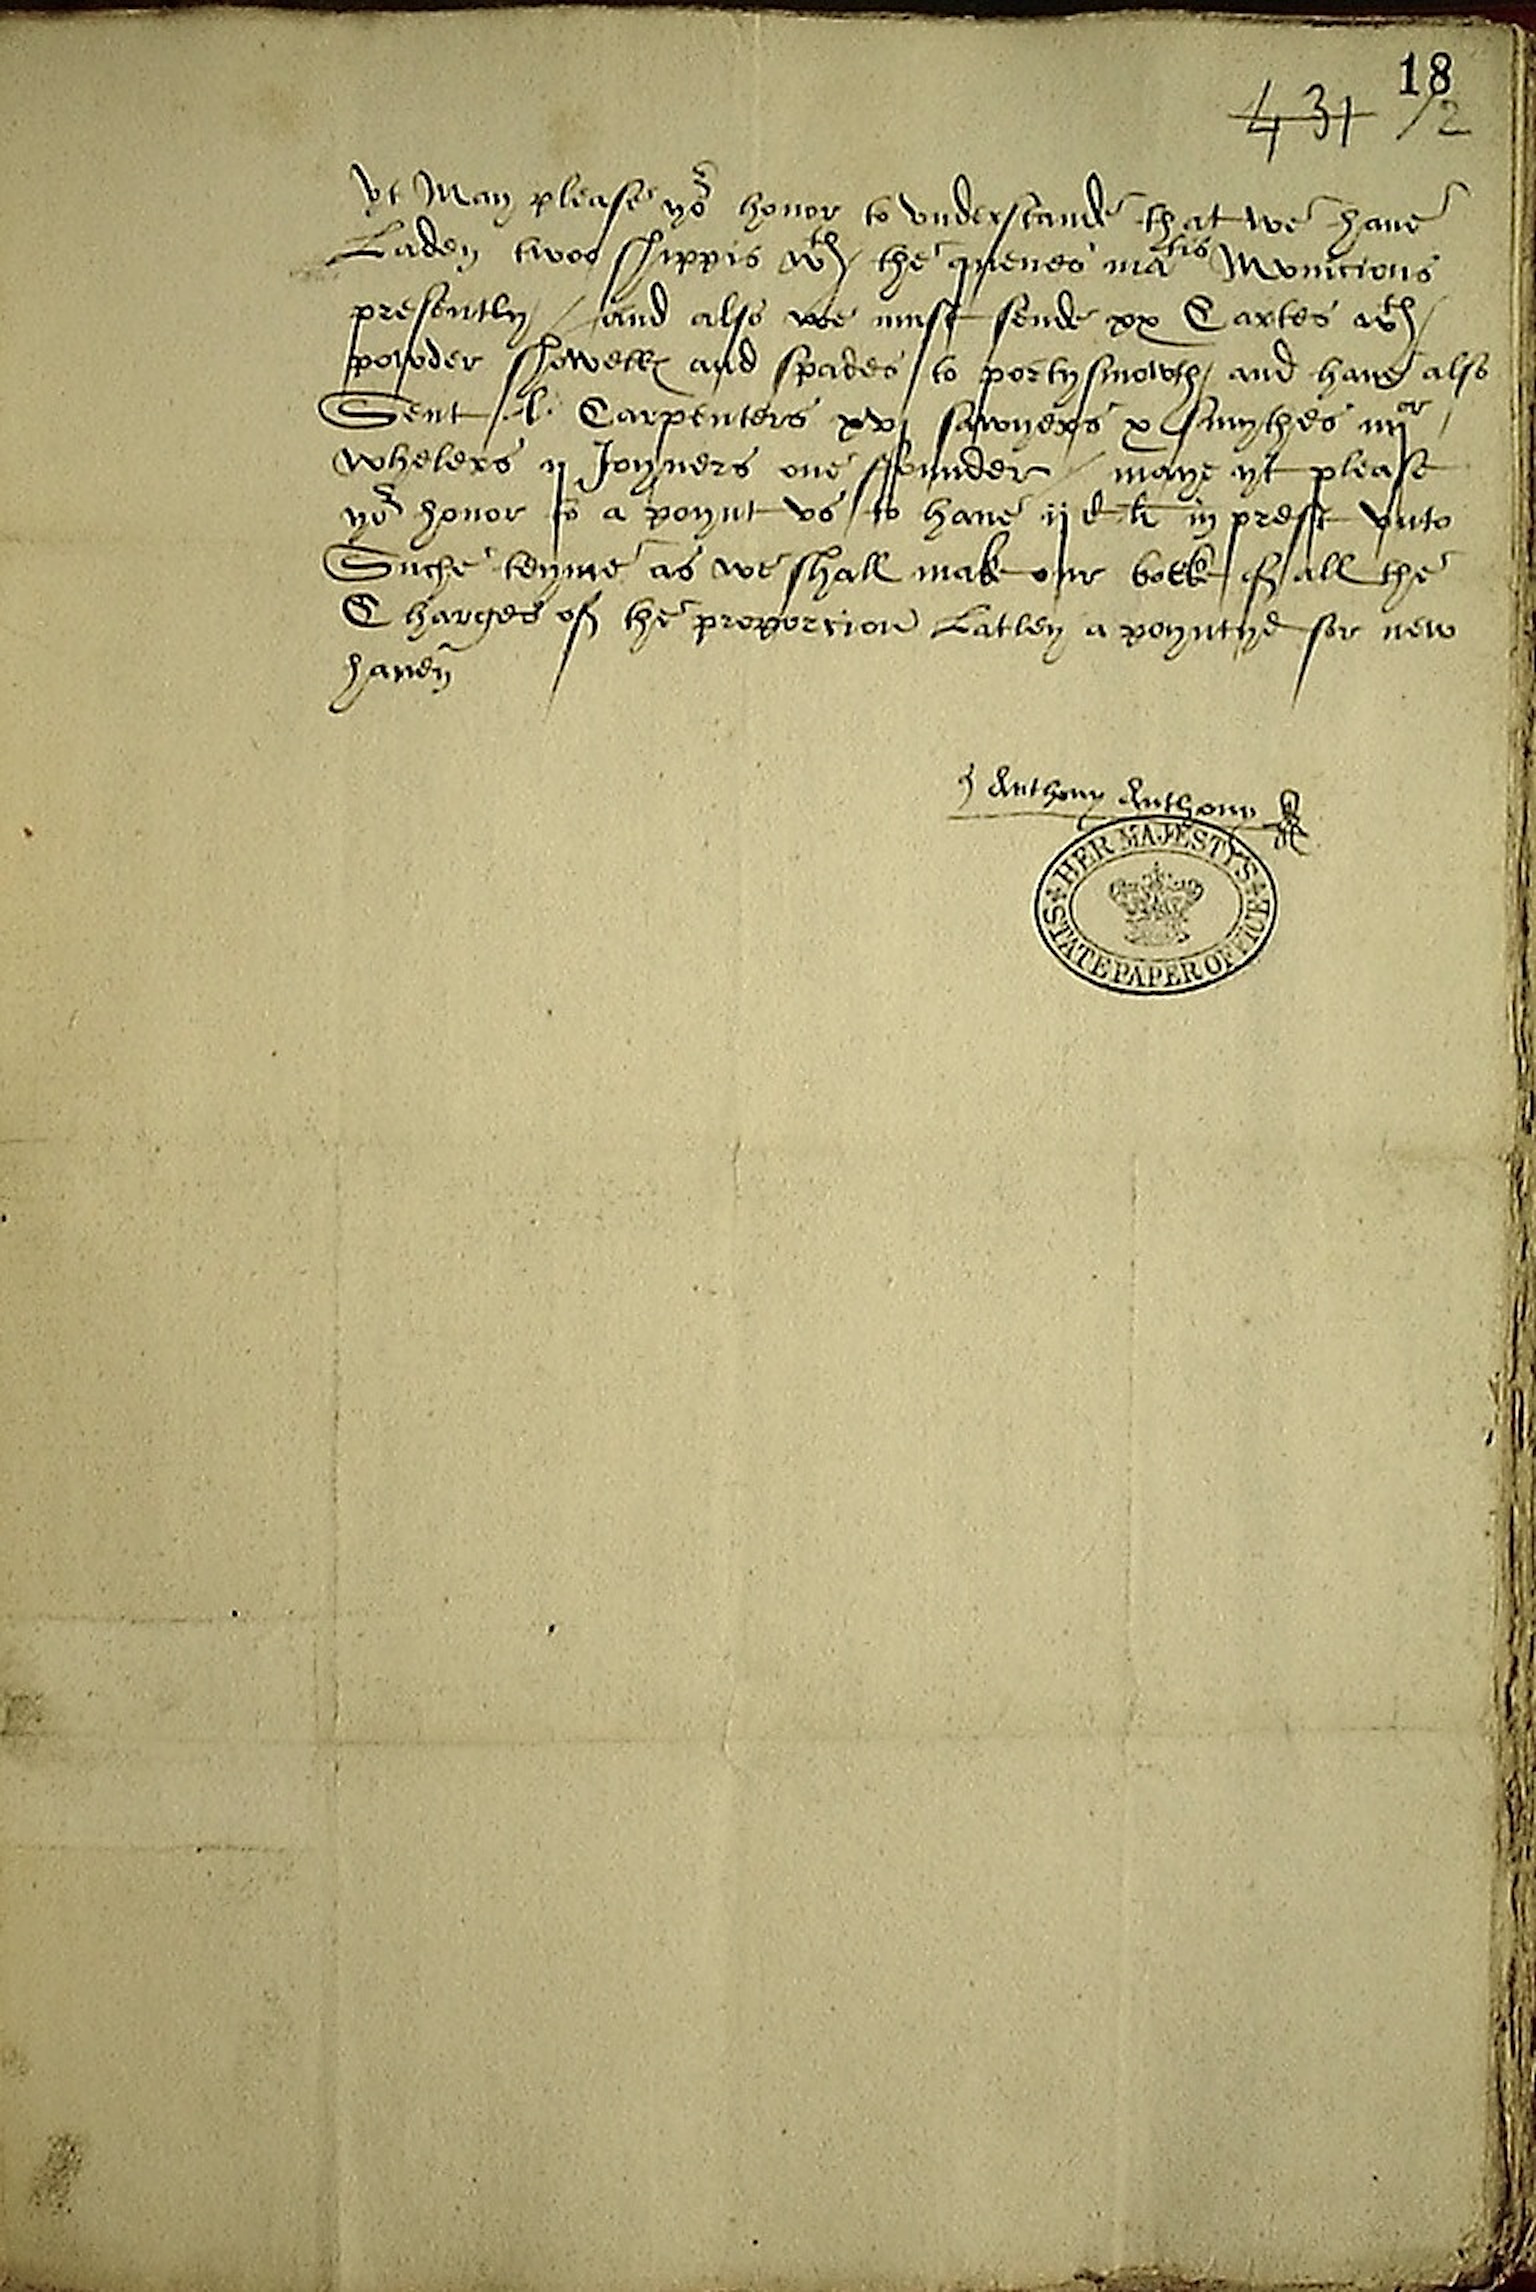 18
431 /2
yt May please yor honor to vnderstande that we haue
Laden twoo shippis wth / the quenes matis Municions
presently / and also we must sende xx Cartes wth /
powder shovells and spades to portysmowth / and haue also
Sent l Carpenters xvj sawyers x smythes iiijor /
whelers ij Joyners one ffounder / maye yt please
yor honor to a poynt vs to haue ij c li in prest vnto
Suche tyme as we shall mak our bokk of all the
Charges of the proporcion Latley a poyntyd for new
haven
Anthony Anthony
HER MAJESTY'S STATE PAPER OFFICE